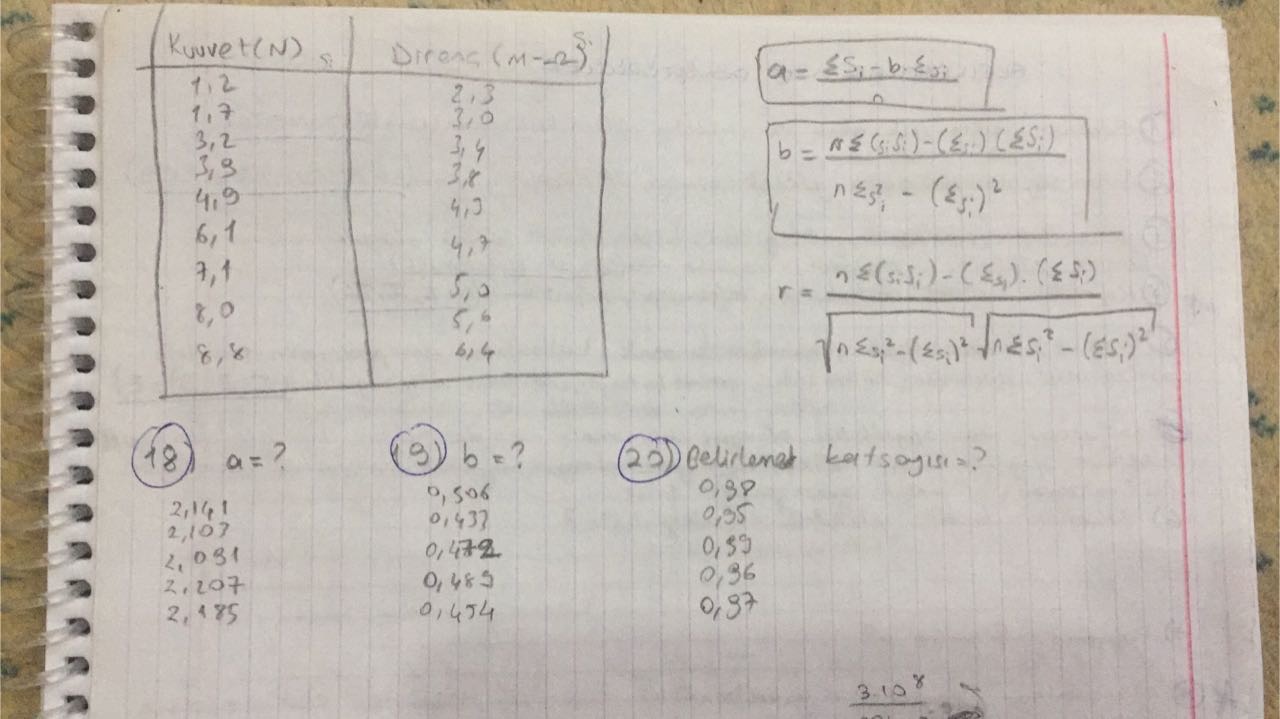 Kuvvet(N) si
Direnç (M-Ω) Si
1,2
2,3
1,7
3,0
3,2
3,4
3,9
3,8
4,9
4,3
6,1
4,7
7,1
5,0
8,0
5,6
8,8
6,4
a = ΣSi - b·Σsi / n
b = nΣ(siSi) - (Σsi)(ΣSi) / nΣsi² - (Σsi)²
r = nΣ(siSi) - (Σsi).(ΣSi) / √nΣsi² - (Σsi)² √nΣSi² - (ΣSi)²
18) a = ?
2,141
2,103
2,091
2,207
2,185
19) b = ?
0,506
0,437
0,472
0,489
0,454
20) katsayısı = ?
0,98
0,95
0,99
0,96
0,97
3.10⁸